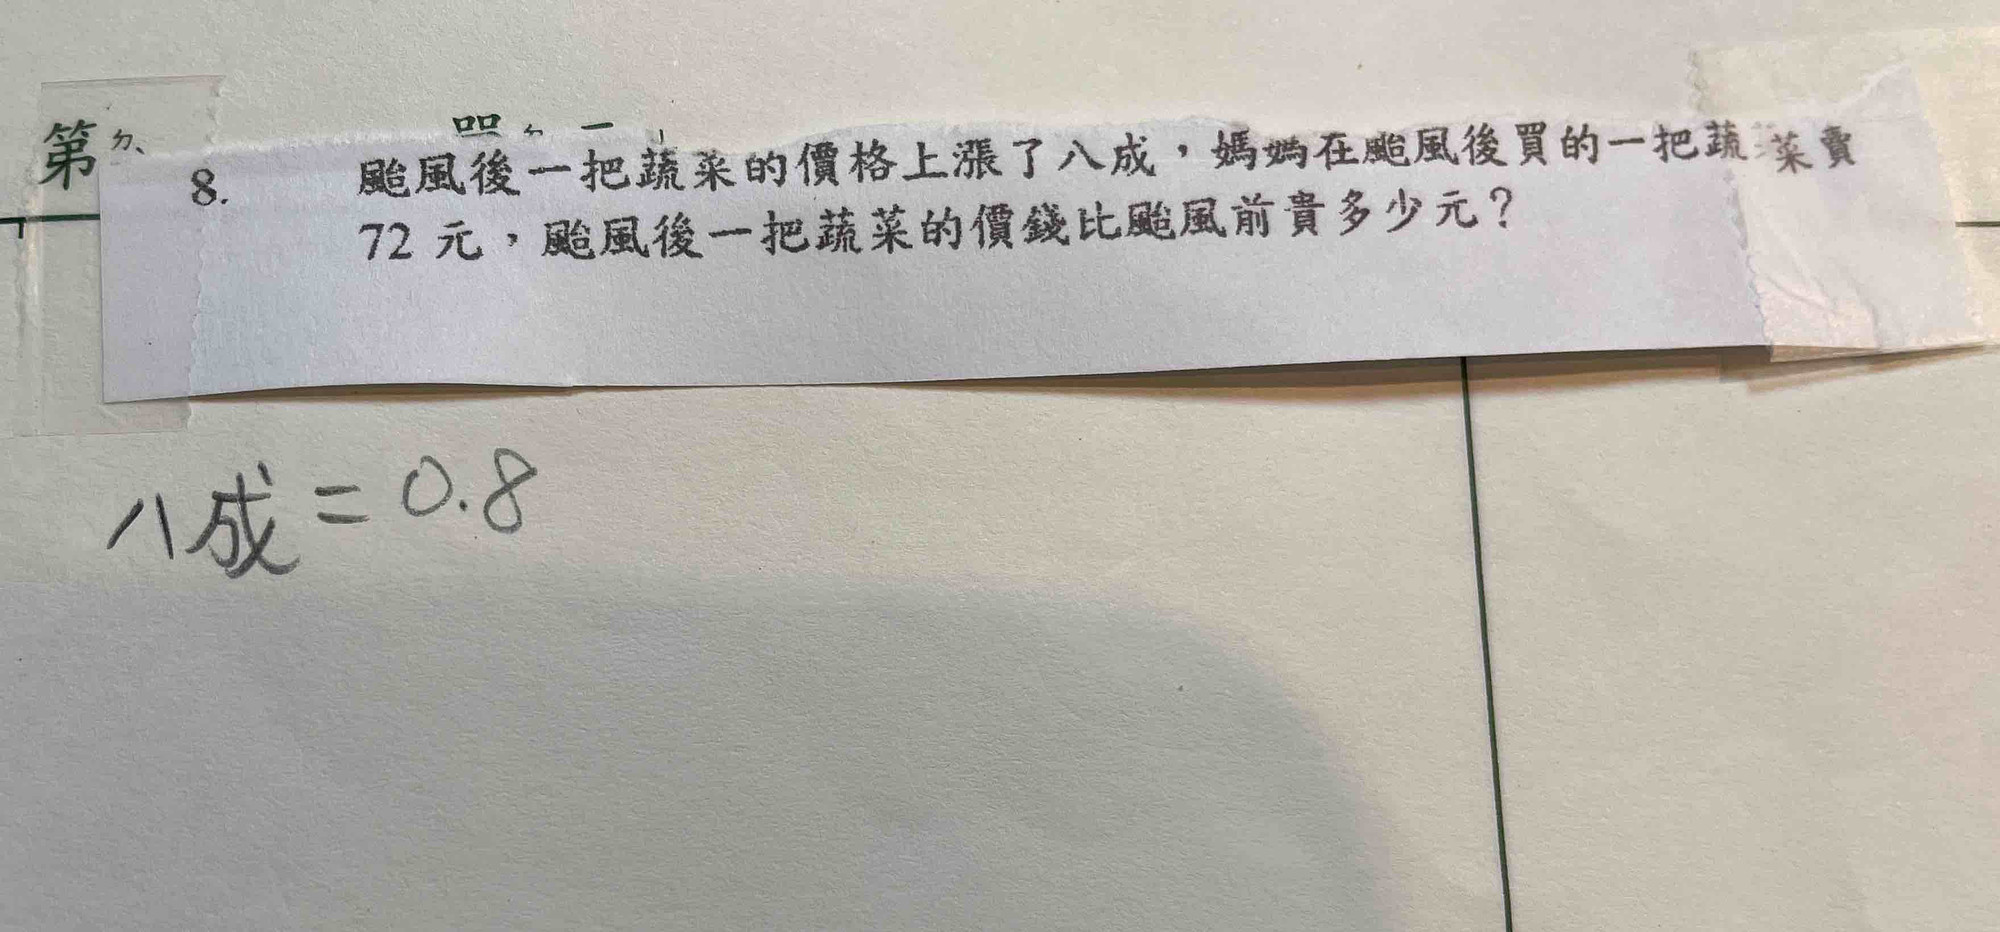 第ㄉˋ
8. 颱風後一把蔬菜的價格上漲了八成，媽媽在颱風後買的一把蔬菜賣
72 元，颱風後一把蔬菜的價錢比颱風前貴多少元？
八成=0.8